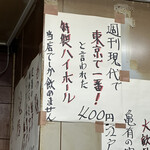 週刊現代で
東京で一番!
と言われた
特製ハイボール
400円
当店でしか飲めません
亀有の
江戸
大歓